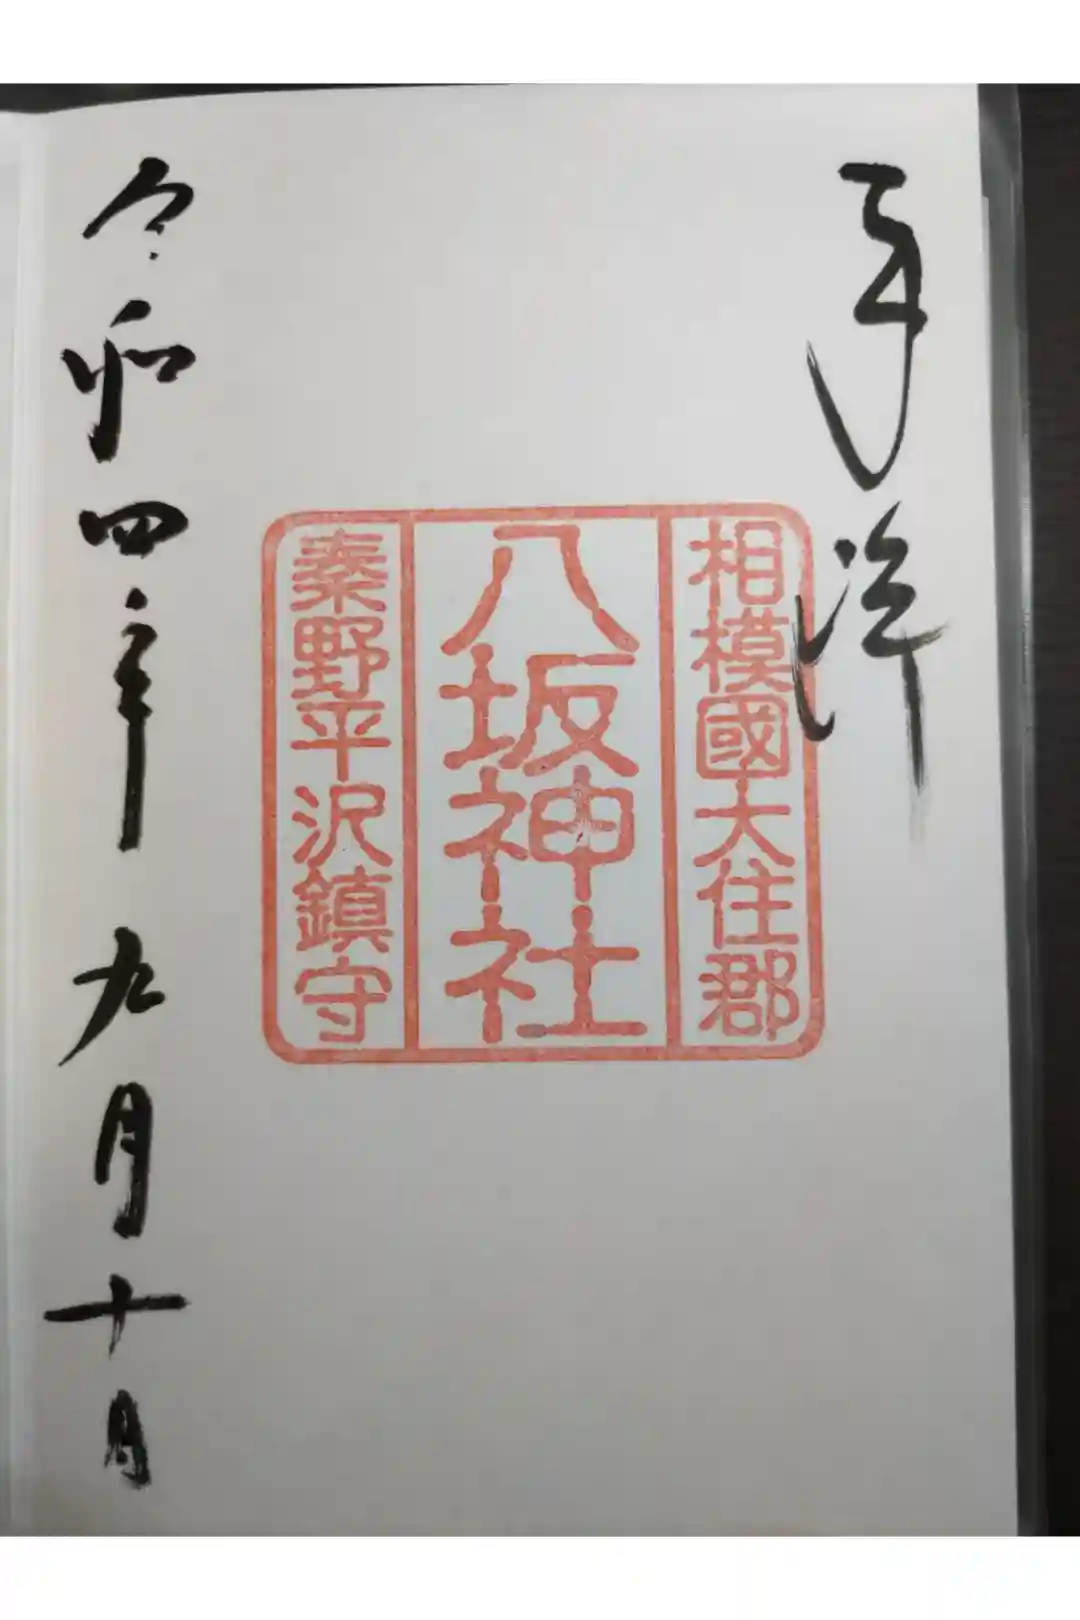 奉拝
相模國大住郡
八坂神社
秦野平沢鎮守
令和四年九月十日